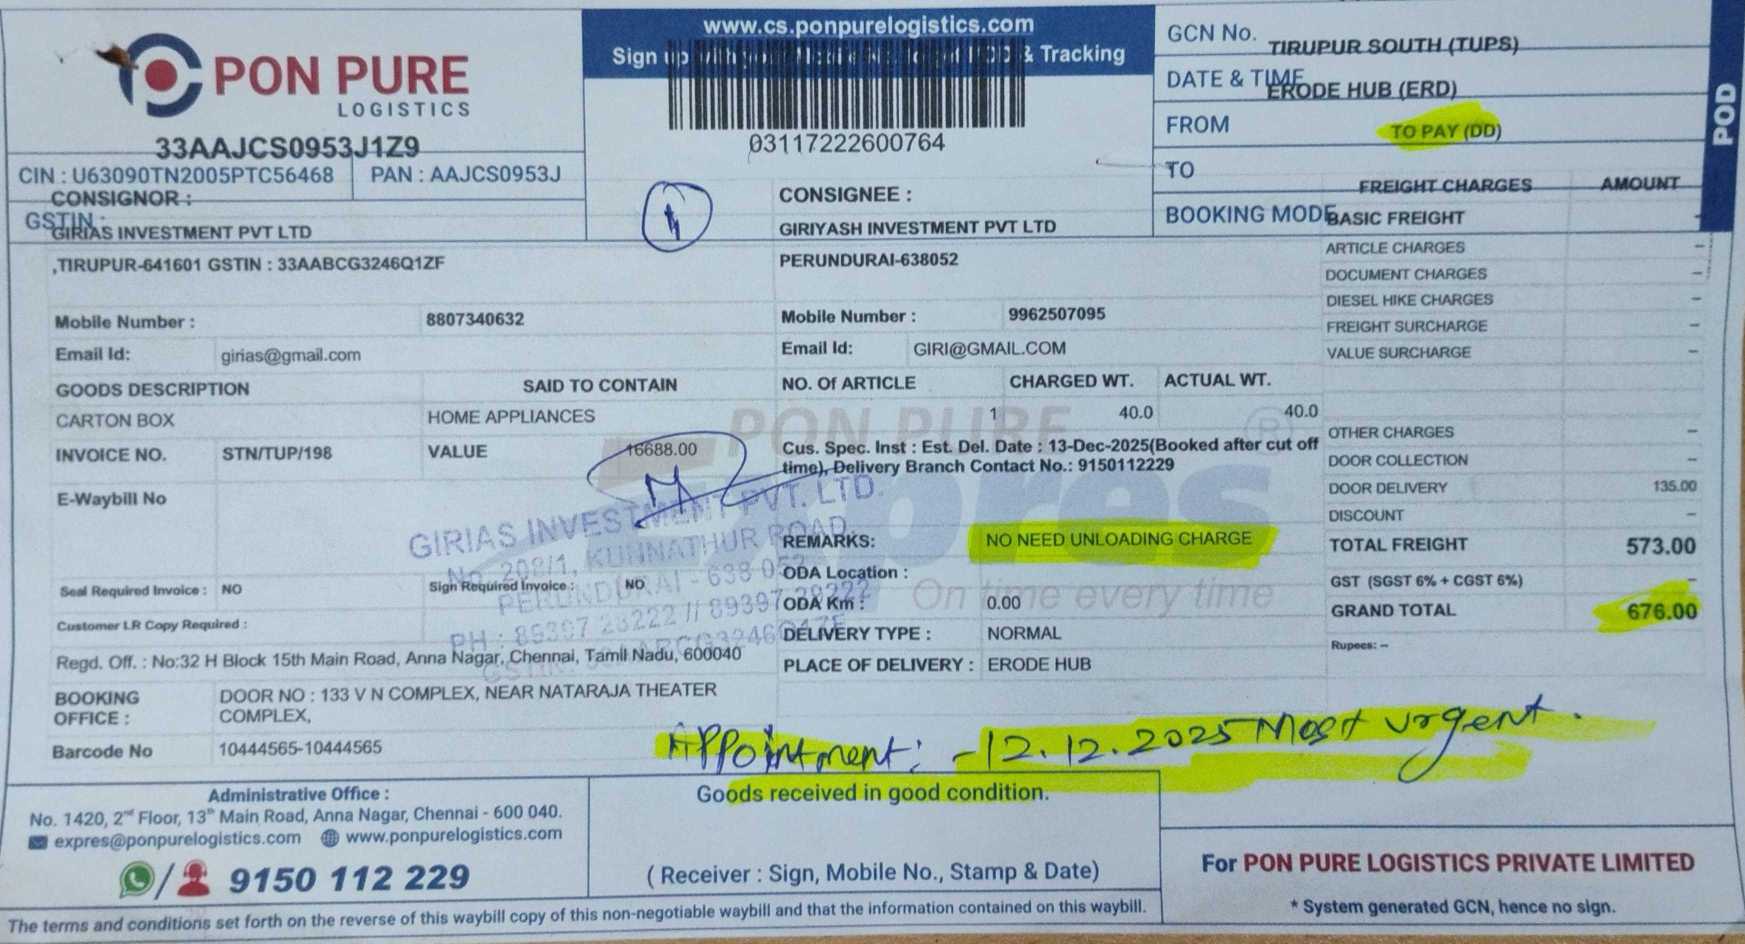 PON PURE
LOGISTICS
33AAJCS0953J1Z9
CIN : U63090TN2005PTC56468 PAN : AAJCS0953J
GSTIN :
www.cs.ponpurelogistics.com
Sign up & Tracking
03117222600764
GCN No. TIRUPUR SOUTH (TUPS)
DATE & TIME ERODE HUB (ERD)
FROM TO PAY (DD)
TO
BOOKING MODE
POD
CONSIGNOR :
GIRIAS INVESTMENT PVT LTD
,TIRUPUR-641601 GSTIN : 33AABCG3246Q1ZF
Mobile Number : 8807340632
Email Id: girias@gmail.com
CONSIGNEE :
GIRIYASH INVESTMENT PVT LTD
PERUNDURAI-638052
Mobile Number : 9962507095
Email Id: GIRI@GMAIL.COM
FREIGHT CHARGES AMOUNT
BASIC FREIGHT -
ARTICLE CHARGES -
DOCUMENT CHARGES -
DIESEL HIKE CHARGES -
FREIGHT SURCHARGE -
VALUE SURCHARGE -
OTHER CHARGES -
DOOR COLLECTION -
DOOR DELIVERY 135.00
DISCOUNT -
TOTAL FREIGHT 573.00
GST (SGST 6% + CGST 6%) -
GRAND TOTAL 676.00
Rupees: -
GOODS DESCRIPTION SAID TO CONTAIN NO. Of ARTICLE CHARGED WT. ACTUAL WT.
CARTON BOX HOME APPLIANCES 1 40.0 40.0
INVOICE NO. STN/TUP/198 VALUE 16688.00
Cus. Spec. Inst : Est. Del. Date : 13-Dec-2025(Booked after cut off
time), Delivery Branch Contact No.: 9150112229
E-Waybill No
PON PURE
Expres
On time every time
GIRIAS INVESTMENT PVT. LTD.
No. 208/1, KUNNATHUR ROAD,
PERUNDURAI - 638 052
REMARKS: NO NEED UNLOADING CHARGE
ODA Location :
ODA Km : 0.00
DELIVERY TYPE : NORMAL
PLACE OF DELIVERY : ERODE HUB
Seal Required Invoice : NO Sign Required Invoice : NO
Customer LR Copy Required :
Regd. Off. : No:32 H Block 15th Main Road, Anna Nagar, Chennai, Tamil Nadu, 600040
BOOKING OFFICE : DOOR NO : 133 V N COMPLEX, NEAR NATARAJA THEATER
COMPLEX,
Barcode No 10444565-10444565
Appointment: - 12.12.2025 Most urgent.
Administrative Office :
No. 1420, 2nd Floor, 13th Main Road, Anna Nagar, Chennai - 600 040.
expres@ponpurelogistics.com www.ponpurelogistics.com
/ 9150 112 229
Goods received in good condition.
( Receiver : Sign, Mobile No., Stamp & Date)
For PON PURE LOGISTICS PRIVATE LIMITED
* System generated GCN, hence no sign.
The terms and conditions set forth on the reverse of this waybill copy of this non-negotiable waybill and that the information contained on this waybill.